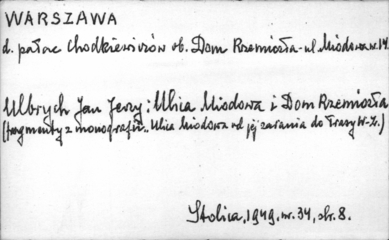 WARSZAWA
d. pałac Chodkiewiczów ob. Dom Rzemiosła - ul. Miodowa nr. 14.
Ulbrych Jan Jerzy: Ulica Miodowa i Dom Rzemiosła
(fragmenty z monografii "Ulica Miodowa od jej zarania do Trasy W-Z.)
Stolica, 1949, nr. 34, str. 8.